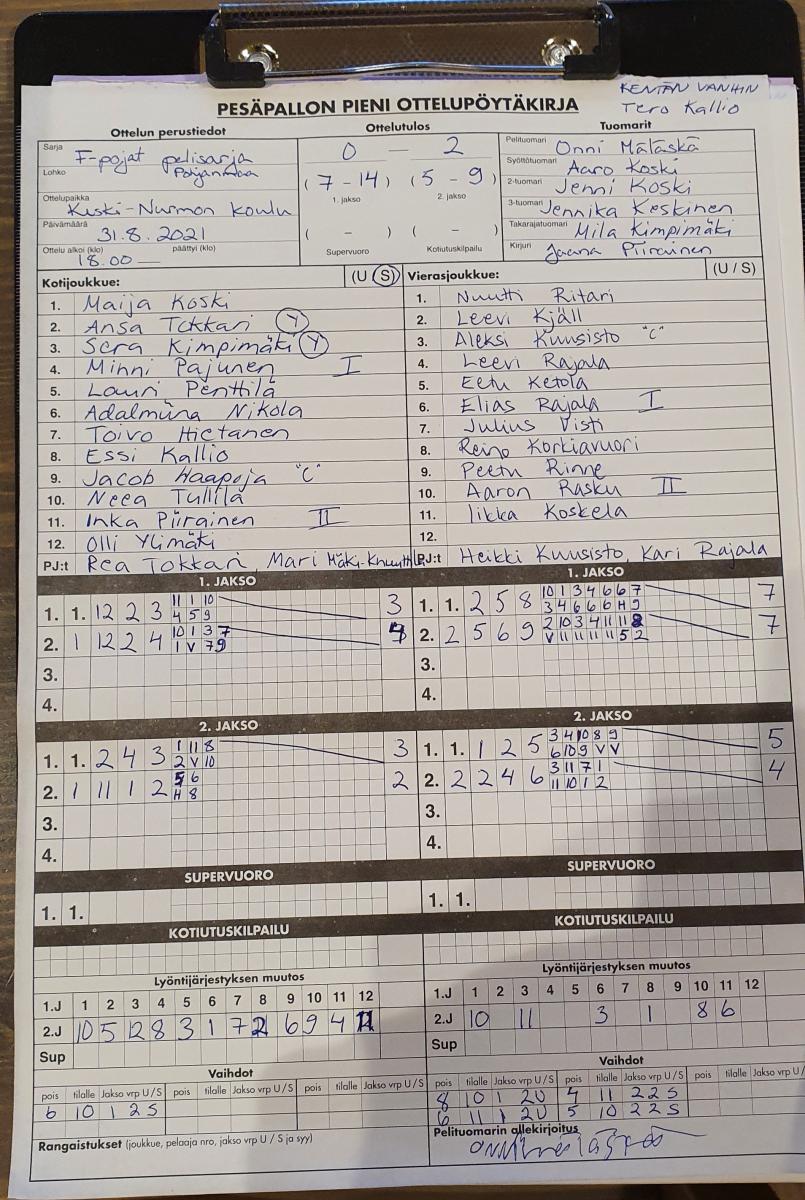 KENTÄN VANHIN
Tero Kallio
PESÄPALLON PIENI OTTELUPÖYTÄKIRJA
Ottelun perustiedot
Sarja F-pojat pelisarja
Lohko Pohjanmaa
Ottelupaikka Keski-Nurmon koulu
Päivämäärä 31.8.2021
Ottelu alkoi (klo) päättyi (klo)
18.00 —
Ottelutulos
0 — 2
(7 - 14) (5 - 9)
1. jakso 2. jakso
( - ) ( - )
Supervuoro Kotiutuskilpailu
Tuomarit
Pelituomari Onni Mätäskä
Syöttötuomari Aaro Koski
2-tuomari Jenni Koski
3-tuomari Jennika Keskinen
Takarajatuomari Mila Kimpimäki
Kirjuri Jaana Piirainen
Kotijoukkue: (U S)
1. Maija Koski
2. Ansa Tokkari Y
3. Sera Kimpimäki Y
4. Minni Pajunen I
5. Lauri Penttilä
6. Adalmiina Nikola
7. Toivo Hietanen
8. Essi Kallio
9. Jacob Haapoja "C"
10. Neea Tullila
11. Inka Piirainen II
12. Olli Ylimäki
PJ:t Rea Tokkari, Mari Mäki-Knuuttila
Vierasjoukkue: (U / S)
1. Nuutti Ritari
2. Leevi Kjäll
3. Aleksi Kuusisto "C"
4. Leevi Rajala
5. Eetu Ketola
6. Elias Rajala I
7. Julius Visti
8. Reino Korkiavuori
9. Peetu Rinne
10. Aaron Rasku II
11. Iikka Koskela
12.
PJ:t Heikki Kuusisto, Kari Rajala
1. JAKSO
1. 1. 12 2 3 11 1 10 3
4 5 9
2. 1 12 2 4 10 1 3 7 4
1 V 7 9
3.
4.
1. JAKSO
1. 1. 2 5 8 10 1 3 4 6 6 7 7
3 4 6 6 6 H 9
2. 2 5 6 9 2 10 3 4 11 11 8 7
V 11 11 11 11 5 2
3.
4.
2. JAKSO
1. 1. 2 4 3 1 11 8 3
2 V 10
2. 1 11 1 2 5 6 2
H 8
3.
4.
2. JAKSO
1. 1. 1 2 5 3 4 10 8 9 5
6 10 9 V V
2. 2 2 4 6 3 11 7 1 4
11 10 1 2
3.
4.
SUPERVUORO
1. 1.
SUPERVUORO
1. 1.
KOTIUTUSKILPAILU
KOTIUTUSKILPAILU
Lyöntijärjestyksen muutos
1.J 1 2 3 4 5 6 7 8 9 10 11 12
2.J 10 5 12 8 3 1 7 2 6 9 4 11
Sup
Lyöntijärjestyksen muutos
1.J 1 2 3 4 5 6 7 8 9 10 11 12
2.J 10 11 3 1 8 6
Sup
Vaihdot
pois tilalle Jakso vrp U / S pois tilalle Jakso vrp U / S pois tilalle Jakso vrp U / S
6 10 1 2 S
Vaihdot
pois tilalle Jakso vrp U / S pois tilalle Jakso vrp U / S pois tilalle Jakso vrp U / S
8 10 1 2U 4 11 2 2 S
6 11 1 2U 5 10 2 2 S
Rangaistukset (joukkue, pelaaja nro, jakso vrp U / S ja syy)
Pelituomarin allekirjoitus